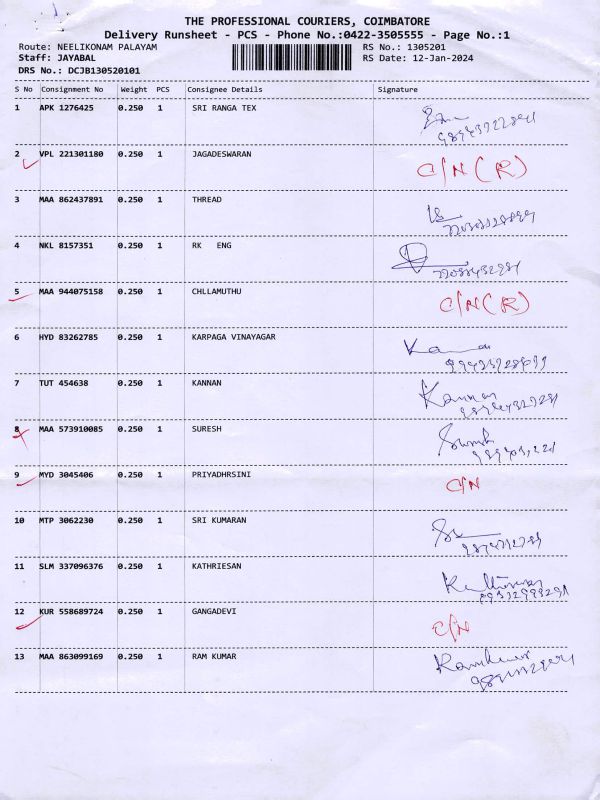 THE PROFESSIONAL COURIERS, COIMBATORE
Delivery Runsheet - PCS - Phone No.:0422-3505555 - Page No.:1
Route: NEELIKONAM PALAYAM RS No.: 1305201
Staff: JAYABAL RS Date: 12-Jan-2024
DRS No.: DCJB130520101
S No Consignment No Weight PCS Consignee Details Signature
1 APK 1276425 0.250 1 SRI RANGA TEX
2 VPL 221301180 0.250 1 JAGADESWARAN C/N (R)
3 MAA 862437891 0.250 1 THREAD
4 NKL 8157351 0.250 1 RK ENG
5 MAA 944075158 0.250 1 CHLLAMUTHU C/N (R)
6 HYD 83262785 0.250 1 KARPAGA VINAYAGAR
7 TUT 454638 0.250 1 KANNAN Kannan
8 MAA 573910085 0.250 1 SURESH
9 MYD 3045406 0.250 1 PRIYADHRSINI C/N
10 MTP 3062230 0.250 1 SRI KUMARAN
11 SLM 337096376 0.250 1 KATHRIESAN
12 KUR 558689724 0.250 1 GANGADEVI C/N
13 MAA 863099169 0.250 1 RAM KUMAR Ramkumar